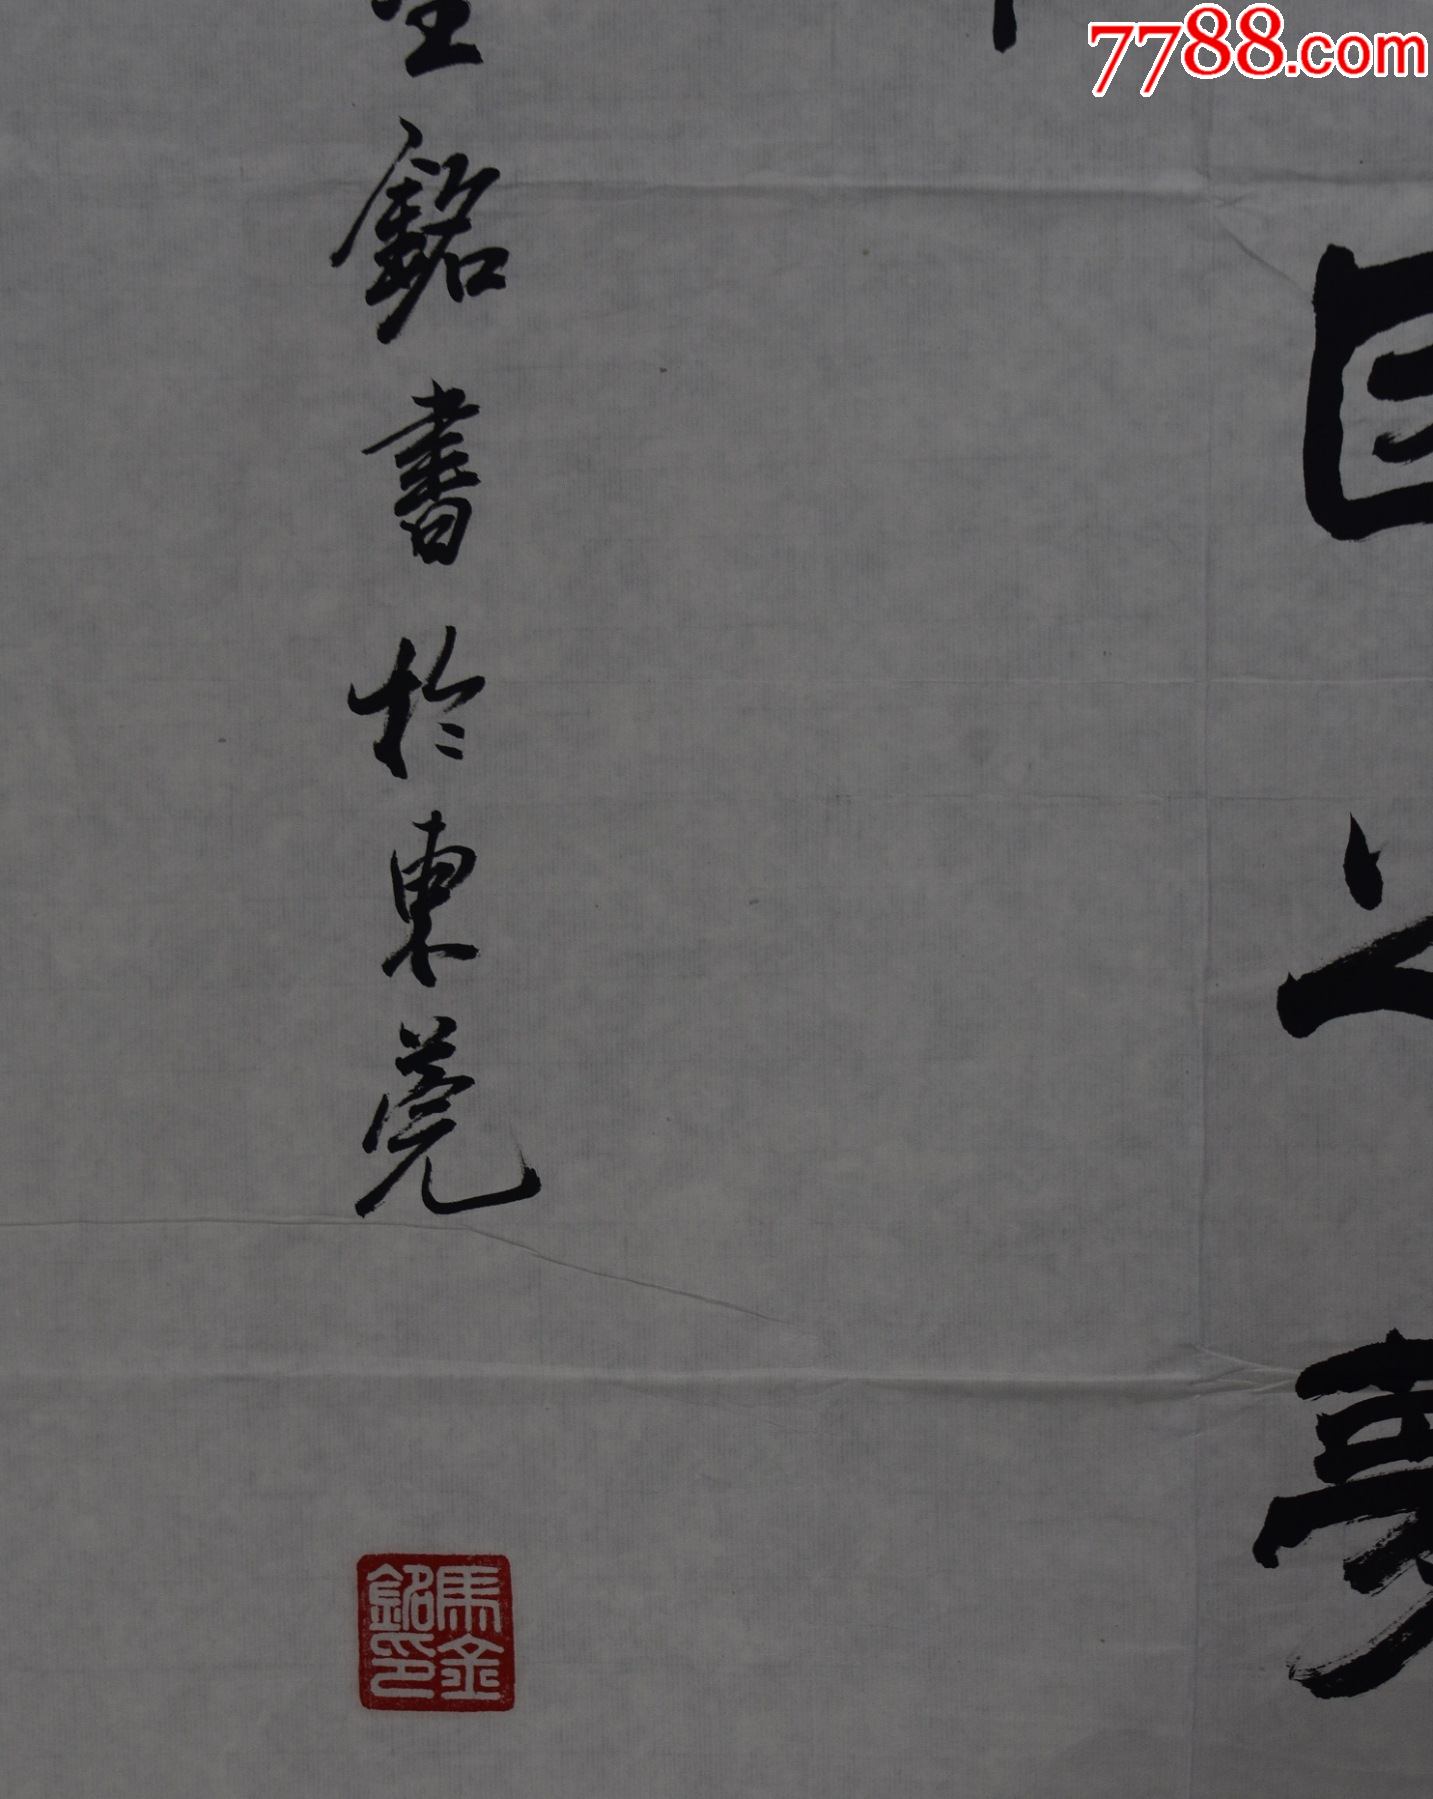 7788.com
之
夢
銘書於東莞
馬金
銘印